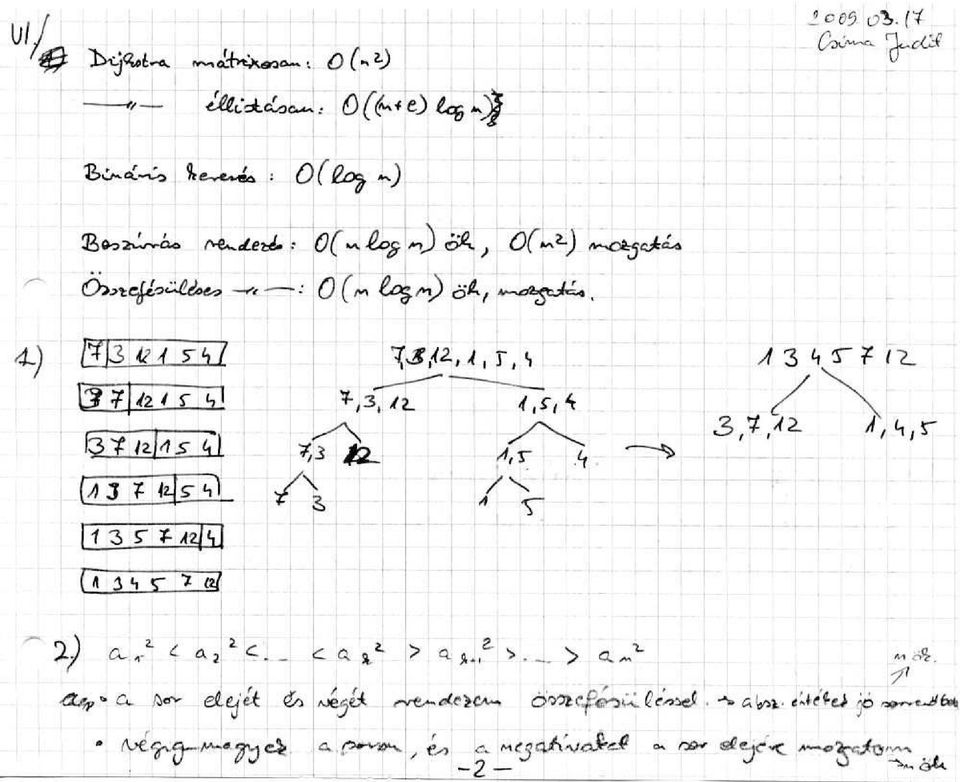 2009 03.17
VI./
Csima Judit
Dijkstra mátrixosan: O(n²)
—〃— éllistásan: O((n+e) log n)
Bináris keresés: O(log n)
Beszúrás rendezés: O(n log n) öh, O(n²) mozgatás
Összefésüléses —〃—: O(n log n) öh, mozgatás.
1)
7|3 12 1 5 4
3 7|12 1 5 4
3 7 12|1 5 4
1 3 7 12|5 4
1 3 5 7 12|4
1 3 4 5 7 12
7,3,12,1,5,4
7,3,12 1,5,4
7,3 12 1,5 4
7 3 1 5
→
1 3 4 5 7 12
3,7,12 1,4,5
2.) a₁² < a₂² < ... < aₖ² > aₖ₊₁² > ... > aₙ²
n öh.
• a sor elejét és végét rendezem összefésüléssel. → absz. értékek jó sorrendben
• végigmegyek a soron, és a negatívakat a sor elejére mozgatom
→ n öh
-2-